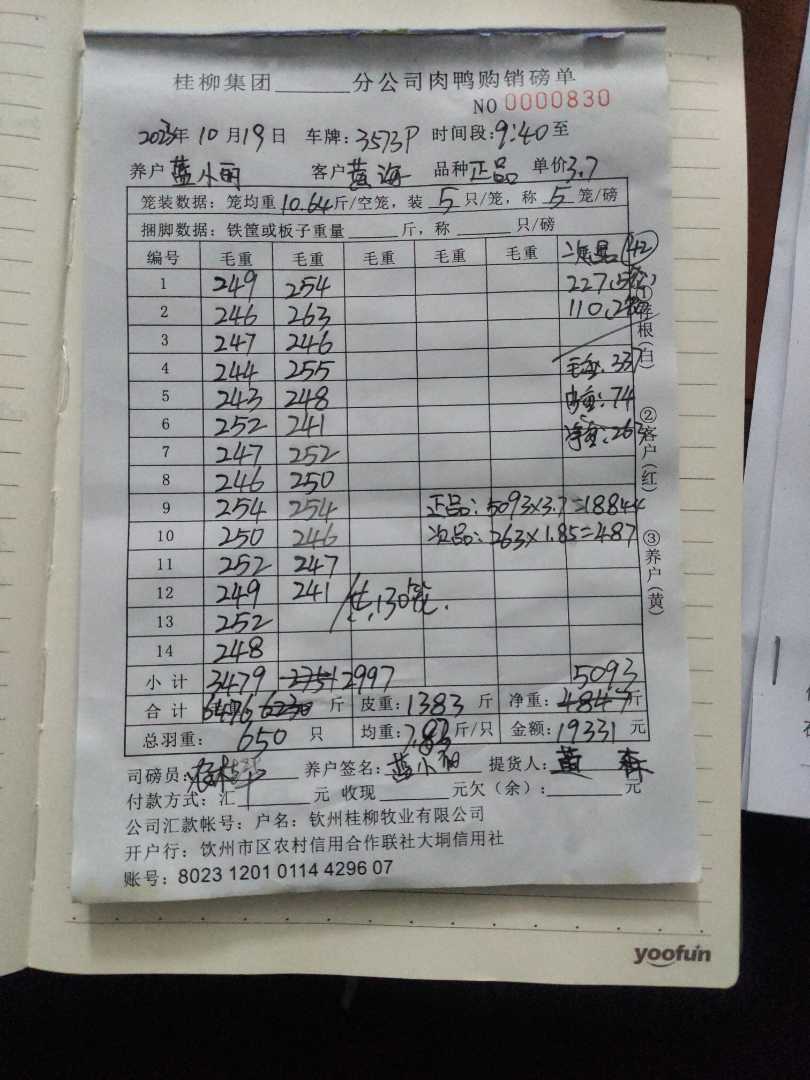 桂柳集团______分公司肉鸭购销磅单
NO 0000830
2023年10月19日 车牌:3573P 时间段:9:40至
养户 蓝小丽 客户 黄海 品种 正品 单价3.7
笼装数据: 笼均重10.64斤/空笼,装 5 只/笼,称 5 笼/磅
捆脚数据: 铁筐或板子重量______斤,称______只/磅
编号 毛重 毛重 毛重 毛重 毛重 次品 42
1 249 254 227
2 246 263 110
3 247 246
4 244 255 毛重:337
5 243 248 皮重:74
6 252 241 净重:263
7 247 252
8 246 250
9 254 254 正品:5093×3.7=18844
10 250 246 次品:263×1.85=487
11 252 247
12 249 241 共130笼.
13 252
14 248
小计 3479 2751 2997 5093
合计 6476 6230 斤 皮重:1383 斤 净重:4847斤
总羽重: 650 只 均重:7.83斤/只 金额:19331元
司磅员: 养户签名:蓝小丽 提货人:黄
付款方式:汇______元 收现______元欠(余):______元
公司汇款帐号: 户名: 钦州桂柳牧业有限公司
开户行: 钦州市区农村信用合作联社大垌信用社
账号: 8023 1201 0114 4296 07
①存根(白) ②客户(红) ③养户(黄)
yoofun